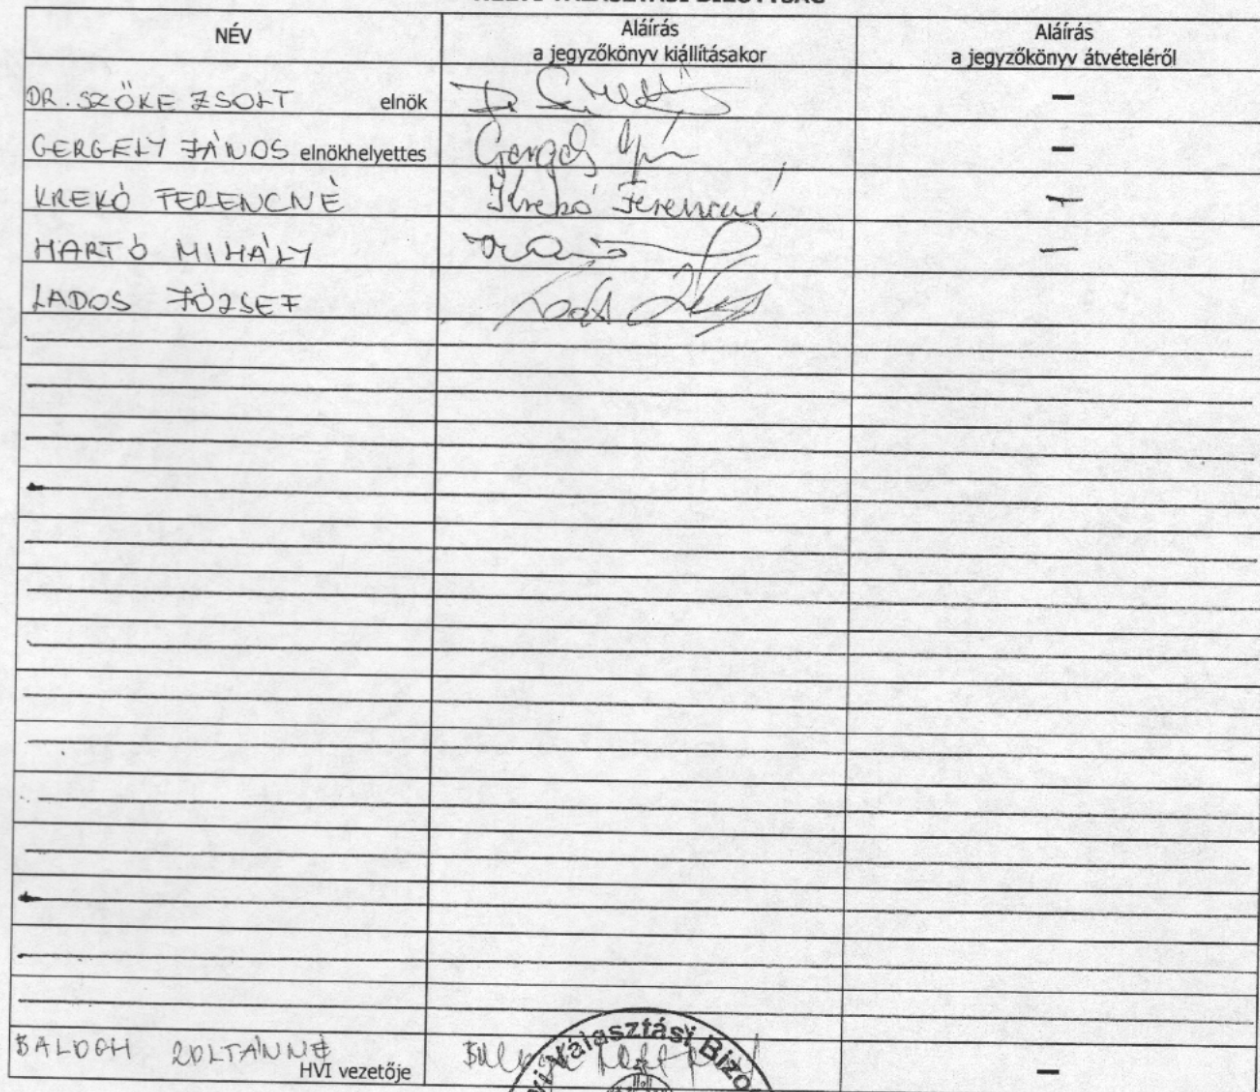 HELYI VÁLASZTÁSI BIZOTTSÁG
NÉV
Aláírás
a jegyzőkönyv kiállításakor
Aláírás
a jegyzőkönyv átvételéről
DR. SZŐKE ZSOLT elnök
–
GERGELY JÁNOS elnökhelyettes Gergely
–
KREKÓ FERENCNÉ Krekó Ferencné
–
HARTÓ MIHÁLY
–
LADOS JÓZSEF
BALOGH ZOLTÁNNÉ
HVI vezetője
–
Választási Bizo